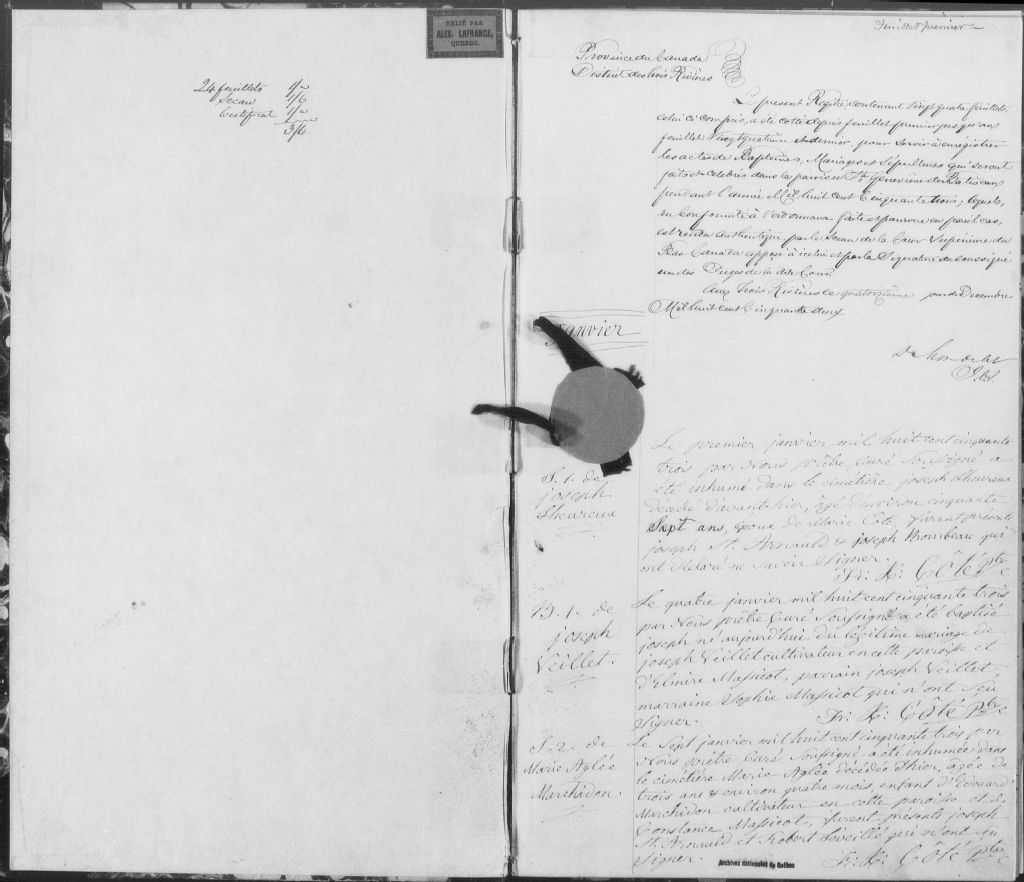 RELIÉ PAR
ALEX. LAFRANCE,
QUEBEC.
24 feuillets 1/-
Sceau 1/6
Certificat 1/-
3/6
Feuillet premier
Province du Canada
District des trois Rivières
Le present Régître, contenant vingt quatre feuillets,
celui ci compris, a été cotté depuis feuillet premier jusqu'au
feuillet vingt quatrième et dernier, pour servir à enrégistrer
les actes de Baptêmes, Mariages et Sépultures qui seront
faits et célébrés dans la paroisse Ste Geneviève de Batiscan
pendant l'année Mil huit cent Cinquante trois; lequel,
en conformité à l'ordonnance faite et pourvue en pareil cas,
est rendu authentique par le Sceau de la Cour Supérieure du
Bas Canada apposé à icelui et par la Signature du soussigné
un des Juges de la dite Cour.
Aux trois Rivières ce quatorzième jour de Decembre
Mil huit cent Cinquante deux
J.C.S.
Janvier
S. 1. de
joseph
Lheureux
Le premier janvier mil huit cent cinquante
trois par Nous prêtre Curé Soussigné a
été inhumé dans le cimetière joseph Lheureux
décédé d'avant hier, âgé d'environ cinquante
Sept ans, époux de Marie Côté, furent présents
joseph St. Arnauld & joseph Bourbeau qui
ont déclaré ne savoir Signer.
Fr: X: Côté ptre
B. 1. de
joseph
Veillet.
Le quatre janvier mil huit cent cinquante trois
par Nous prêtre Curé Soussigné a été baptisé
joseph né aujourd'hui du légitime mariage de
joseph Veillet cultivateur en cette paroisse et
d'Elmire Massicot, parrain joseph Veillet,
marraine Sophie Massicot qui n'ont Seu
Signer.
Fr: X: Côté Ptre
S. 2. de
Marie Aglée
Marchidon.
Le Sept janvier mil huit cent cinquante trois par
Nous prêtre Curé Soussigné a été inhumée dans
le cimetière Marie Aglée décédée d'hier, âgée de
trois ans & environ quatre mois, enfant d'Edouard
Marchidon cultivateur en cette paroisse et de
Constance Massicot, furent présents joseph
St. Arnauld et Robert Léveillé qui n'ont su
Signer.
Fr: X: Côté Ptre
Archives nationales du Québec